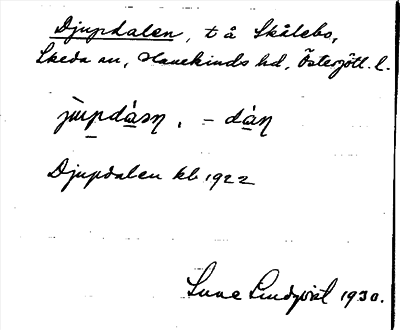 Djupdalen, t å Skålebo,
Skeda sn, Hanekinds hd, Östergötl. l.
Djupdalen kb 1922
Sune Lindqvist 1930.